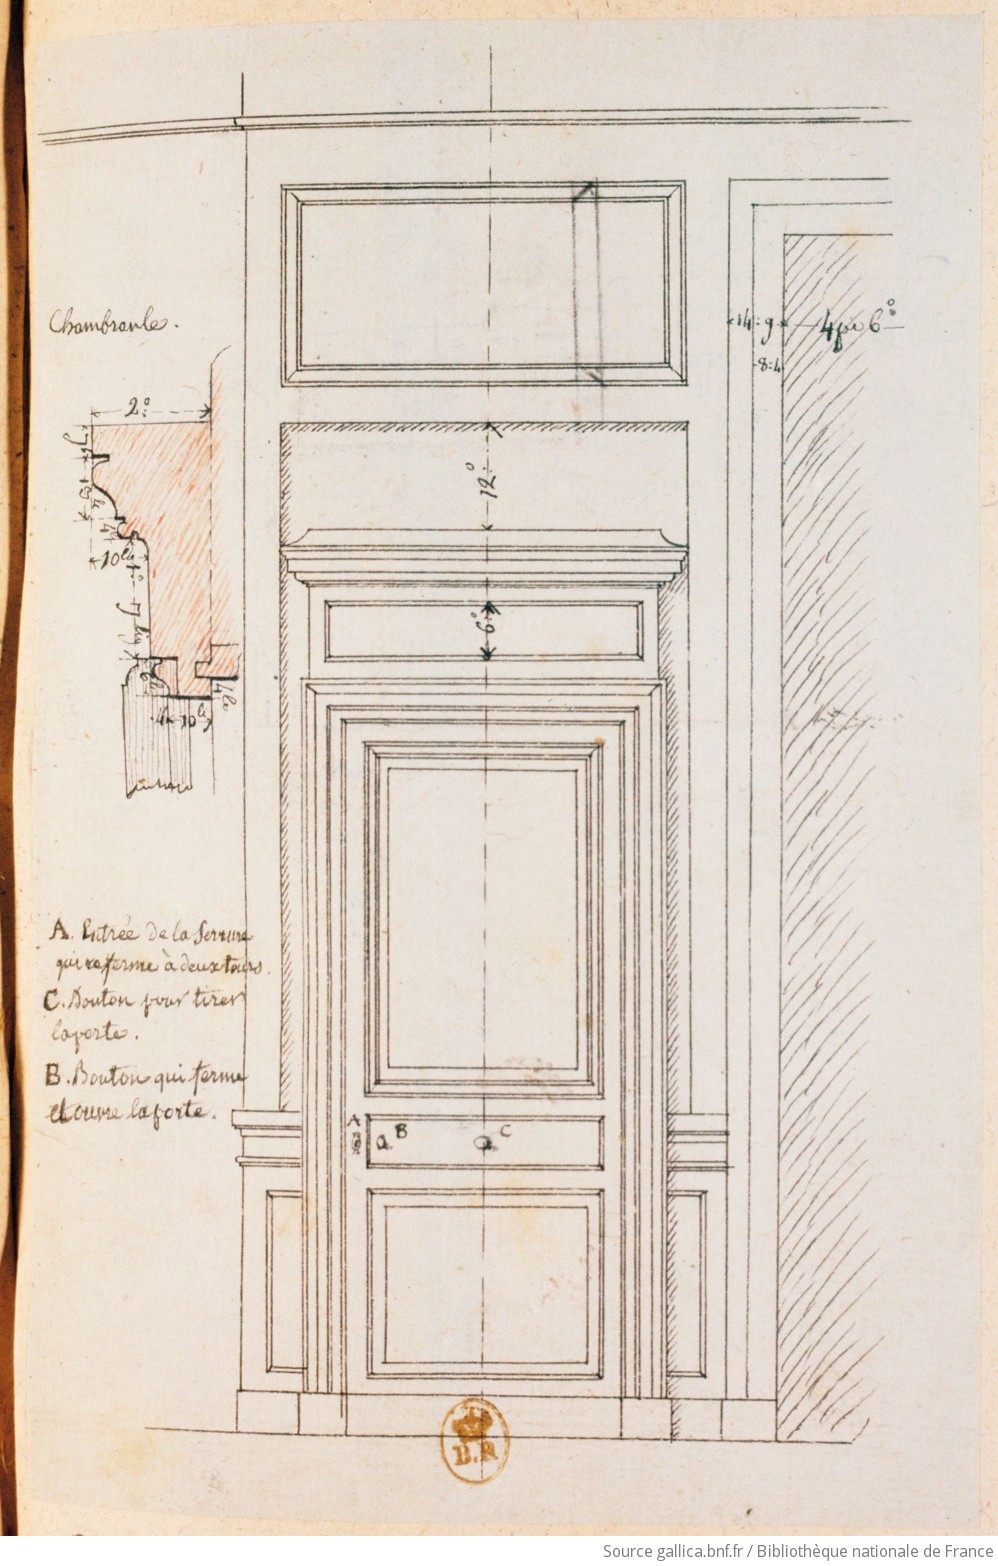 Chambranle.
2°
10 lig
1°
4 lig 10 lig
4 lig
12°
6°
14:9
8:4
4pi 6°
A. Entrée de la Serrure
qui se ferme à deux tours.
C. Bouton pour tirer
la porte.
B. Bouton qui ferme
et ouvre la porte.
A
B
C
B.R
Source gallica.bnf.fr / Bibliothèque nationale de France